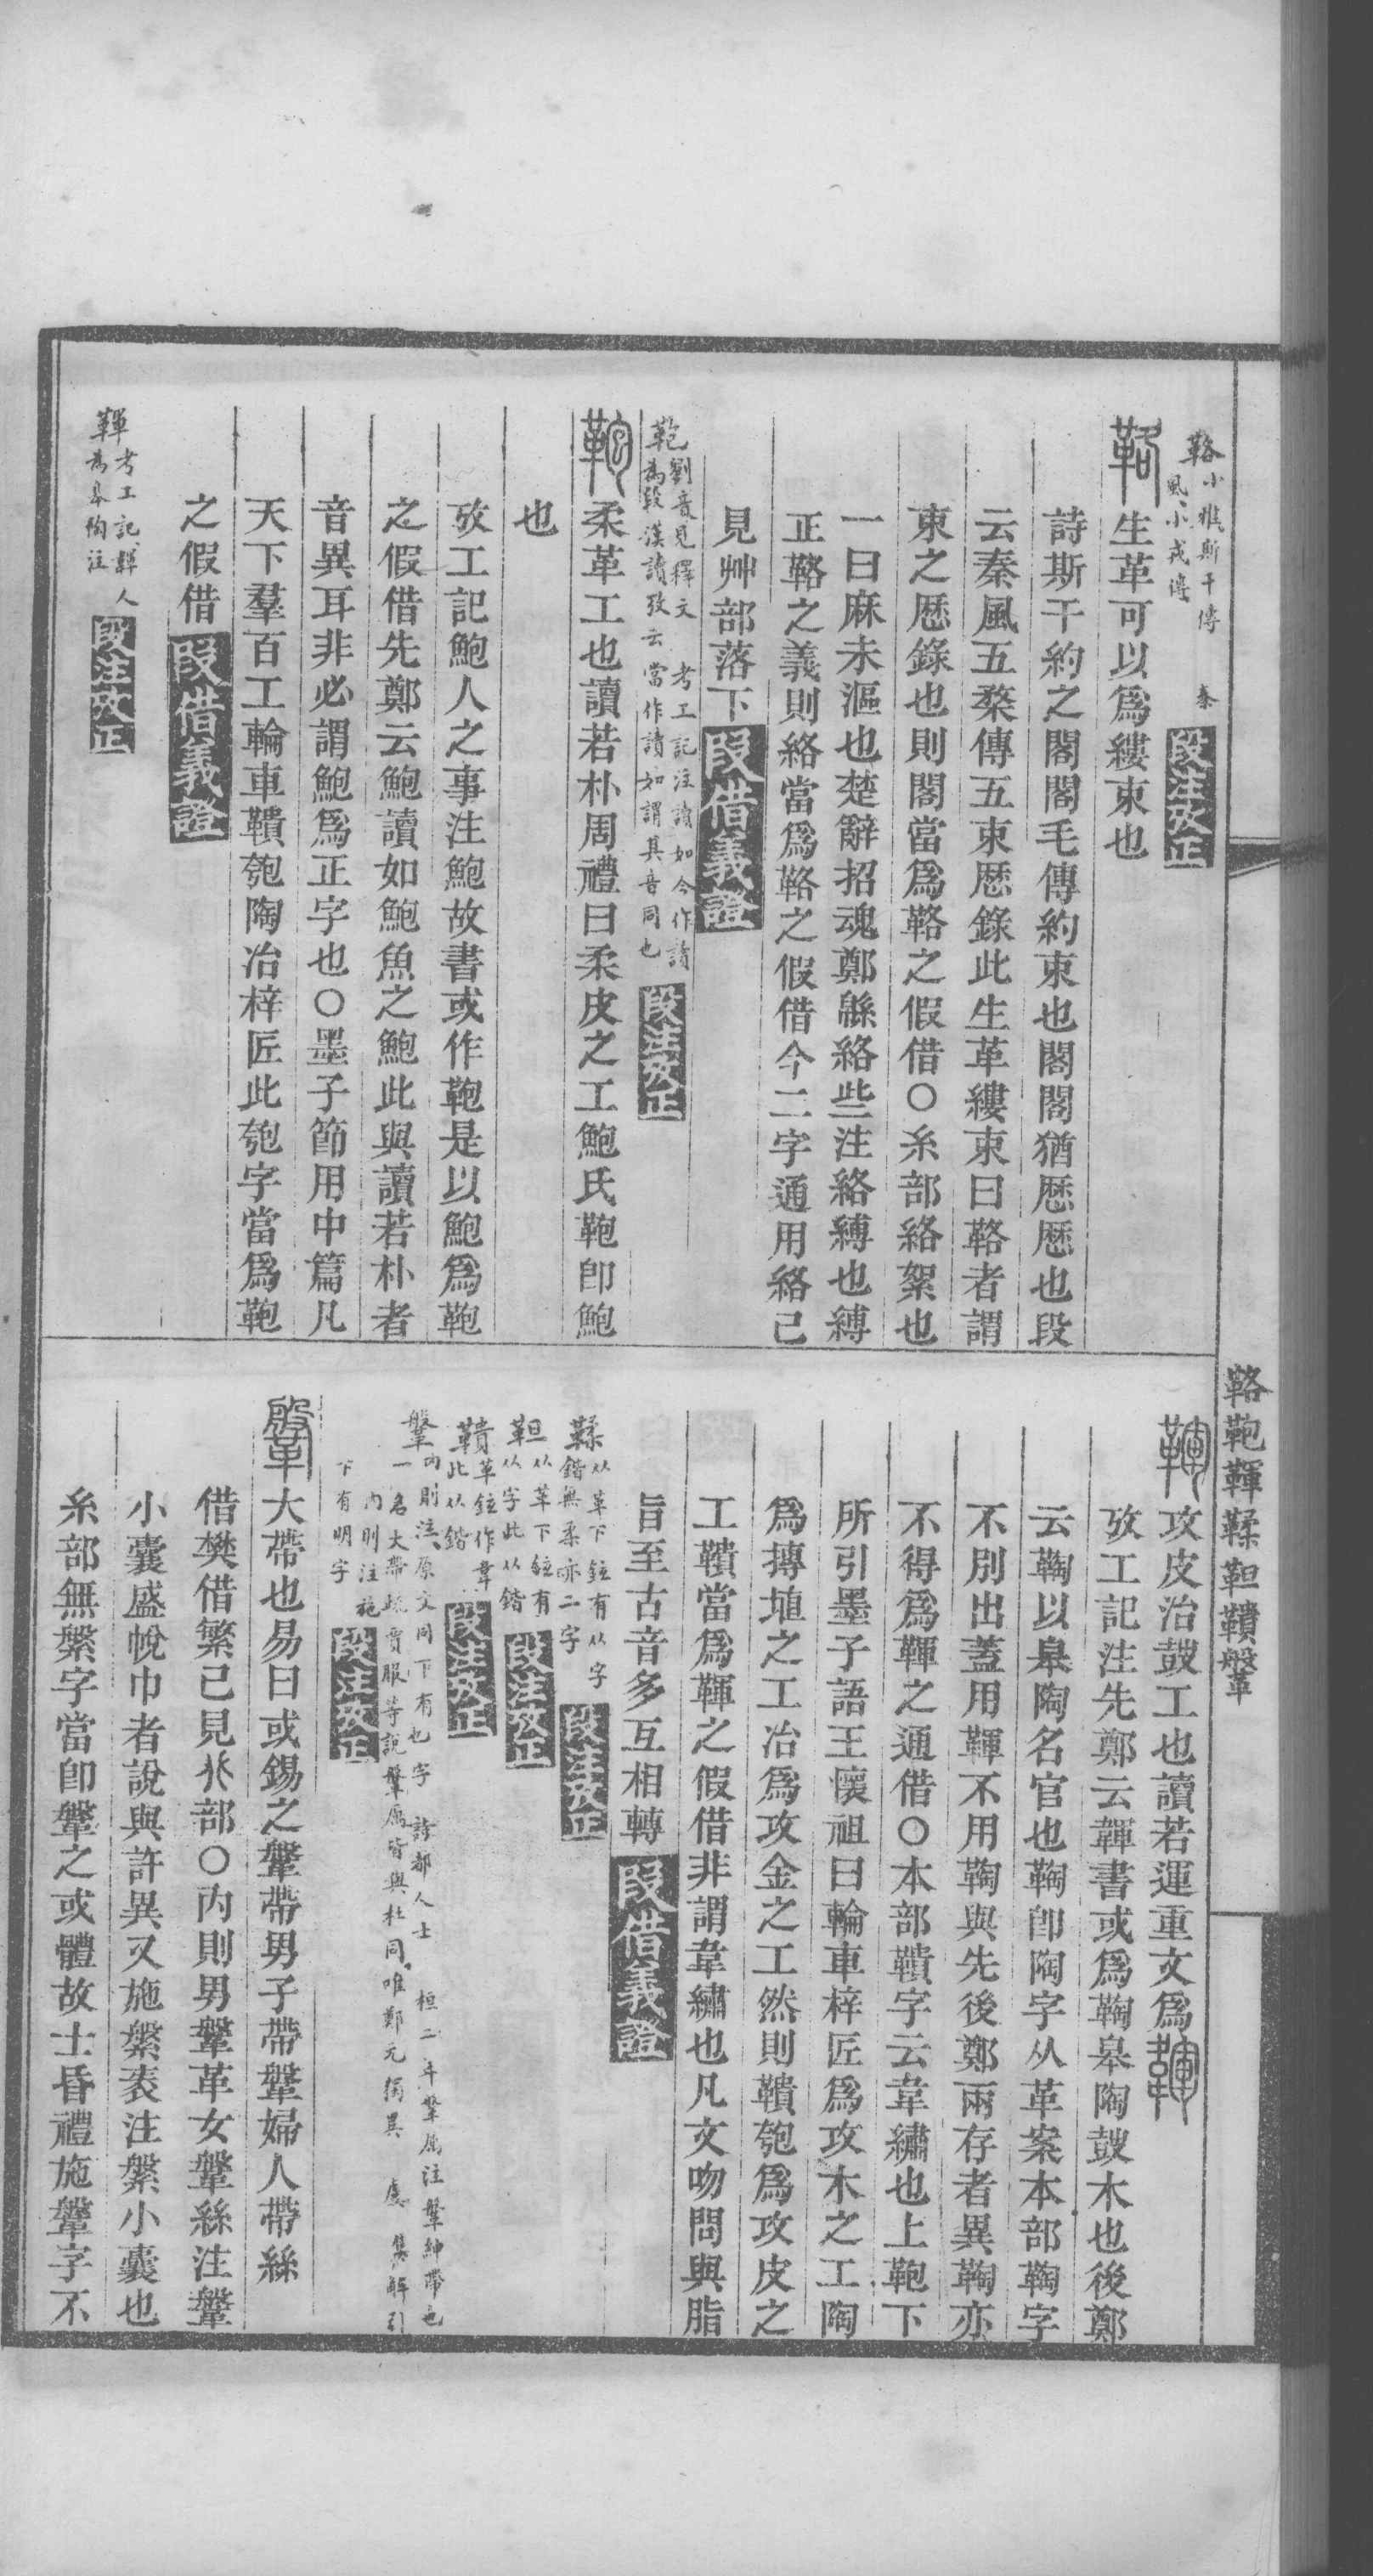 鞈鞄鞼鞣靼鞼鞶
鞈小雅斯干傳　秦
風小戎傳　段注攷正
鞈生革可以爲縷束也
詩斯干約之閣閣毛傳約束也閣閣猶歷歷也段
云秦風五楘傳五束歷錄此生革縷束曰鞈者謂
束之歷錄也則閣當爲鞈之假借〇糸部絡絮也
一曰麻未漚也楚辭招魂鄭緜絡些注絡縛也縛
正鞈之義則絡當爲鞈之假借今二字通用絡已
見艸部落下段借義證
鞄劉音見釋文　考工記注讀如今作讀
爲段漢讀攷云當作讀如謂其音同也　段注攷正
鞄柔革工也讀若朴周禮曰柔皮之工鮑氏鞄卽鮑
也
攷工記鮑人之事注鮑故書或作鞄是以鮑爲鞄
之假借先鄭云鮑讀如鮑魚之鮑此與讀若朴者
音異耳非必謂鮑爲正字也〇墨子節用中篇凡
天下羣百工輪車鞼匏陶冶梓匠此匏字當爲鞄
之假借　段借義證
鞾考工記韗人
爲皋陶注　段注攷正
鞾攻皮治鼓工也讀若運重文爲韗
攷工記注先鄭云韗書或爲鞠皋陶鼓木也後鄭
云鞠以皋陶名官也鞠卽陶字从革案本部鞠字
不別出蓋用鞾不用鞠與先後鄭兩存者異鞠亦
不得爲鞾之通借〇本部鞼字云韋繡也上鞄下
所引墨子語王懷祖曰輪車梓匠爲攻木之工陶
爲摶埴之工冶爲攻金之工然則鞼匏爲攻皮之
工鞼當爲鞾之假借非謂韋繡也凡文吻問與脂
旨至古音多互相轉　段借義證
鞣从革下鉉有从字
鍇無柔亦二字　段注攷正
靼从革下鉉有
从字此从鍇　段注攷正
鞼革鉉作韋
此从鍇　段注攷正
鞶內則注原文同下有也字　詩都人士　桓二年鞶厲注鞶紳帶也
一名大帶疏賈服等說鞶厲皆與杜同唯鄭元獨異　虞　集解引
內則注施
下有明字　段注攷正
鞶大帶也易曰或錫之鞶帶男子帶鞶婦人帶絲
借樊借繁已見𠬜部〇內則男鞶革女鞶絲注鞶
小囊盛帨巾者說與許異又施縏袠注縏小囊也
糸部無縏字當卽鞶之或體故士昏禮施鞶字不